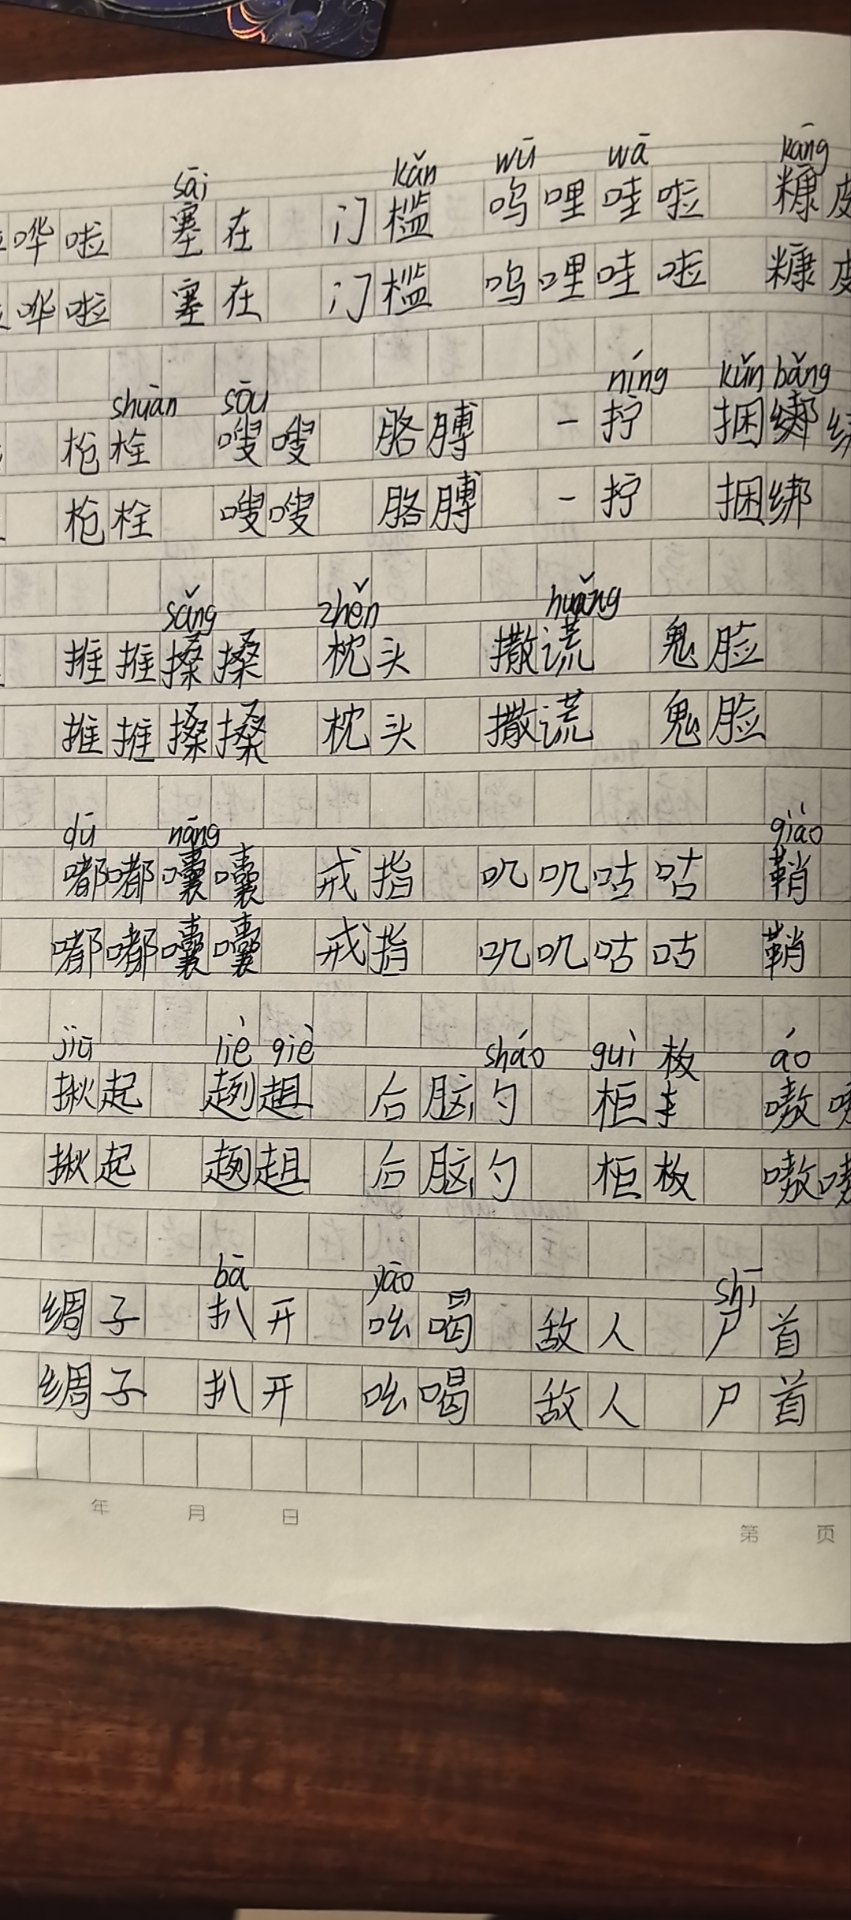 sāi kǎn wū wā kāng
哗啦 塞在 门槛 呜哩哇啦 糠皮
哗啦 塞在 门槛 呜哩哇啦 糠皮
shuān sōu níng kǔn bǎng
枪栓 嗖嗖 胳膊 一拧 捆绑 绑
枪栓 嗖嗖 胳膊 一拧 捆绑
sǎng zhěn huǎng
推推搡搡 枕头 撒谎 鬼脸
推推搡搡 枕头 撒谎 鬼脸
dū nāng qiào
嘟嘟囔囔 戒指 叽叽咕咕 鞘
嘟嘟囔囔 戒指 叽叽咕咕 鞘
jiū liè qiè sháo guì 板 áo
揪起 趔趄 后脑勺 柜 嗷嗷
揪起 趔趄 后脑勺 柜板 嗷嗷
bā yāo shī
绸子 扒开 吆喝 敌人 尸首
绸子 扒开 吆喝 敌人 尸首
年 月 日
第 页